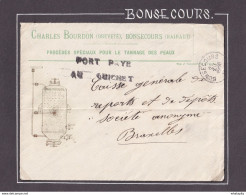 BONSECOURS.
CHARLES BOURBON (SUCCESR), BONSECOURS (HAINAUT)
PROCÉDÉS SPÉCIAUX POUR LE TANNAGE DES PEAUX
PORT PAYE
AU GUICHET
Caisse générale
reports et de dépôts
société anonyme
Bruxelles